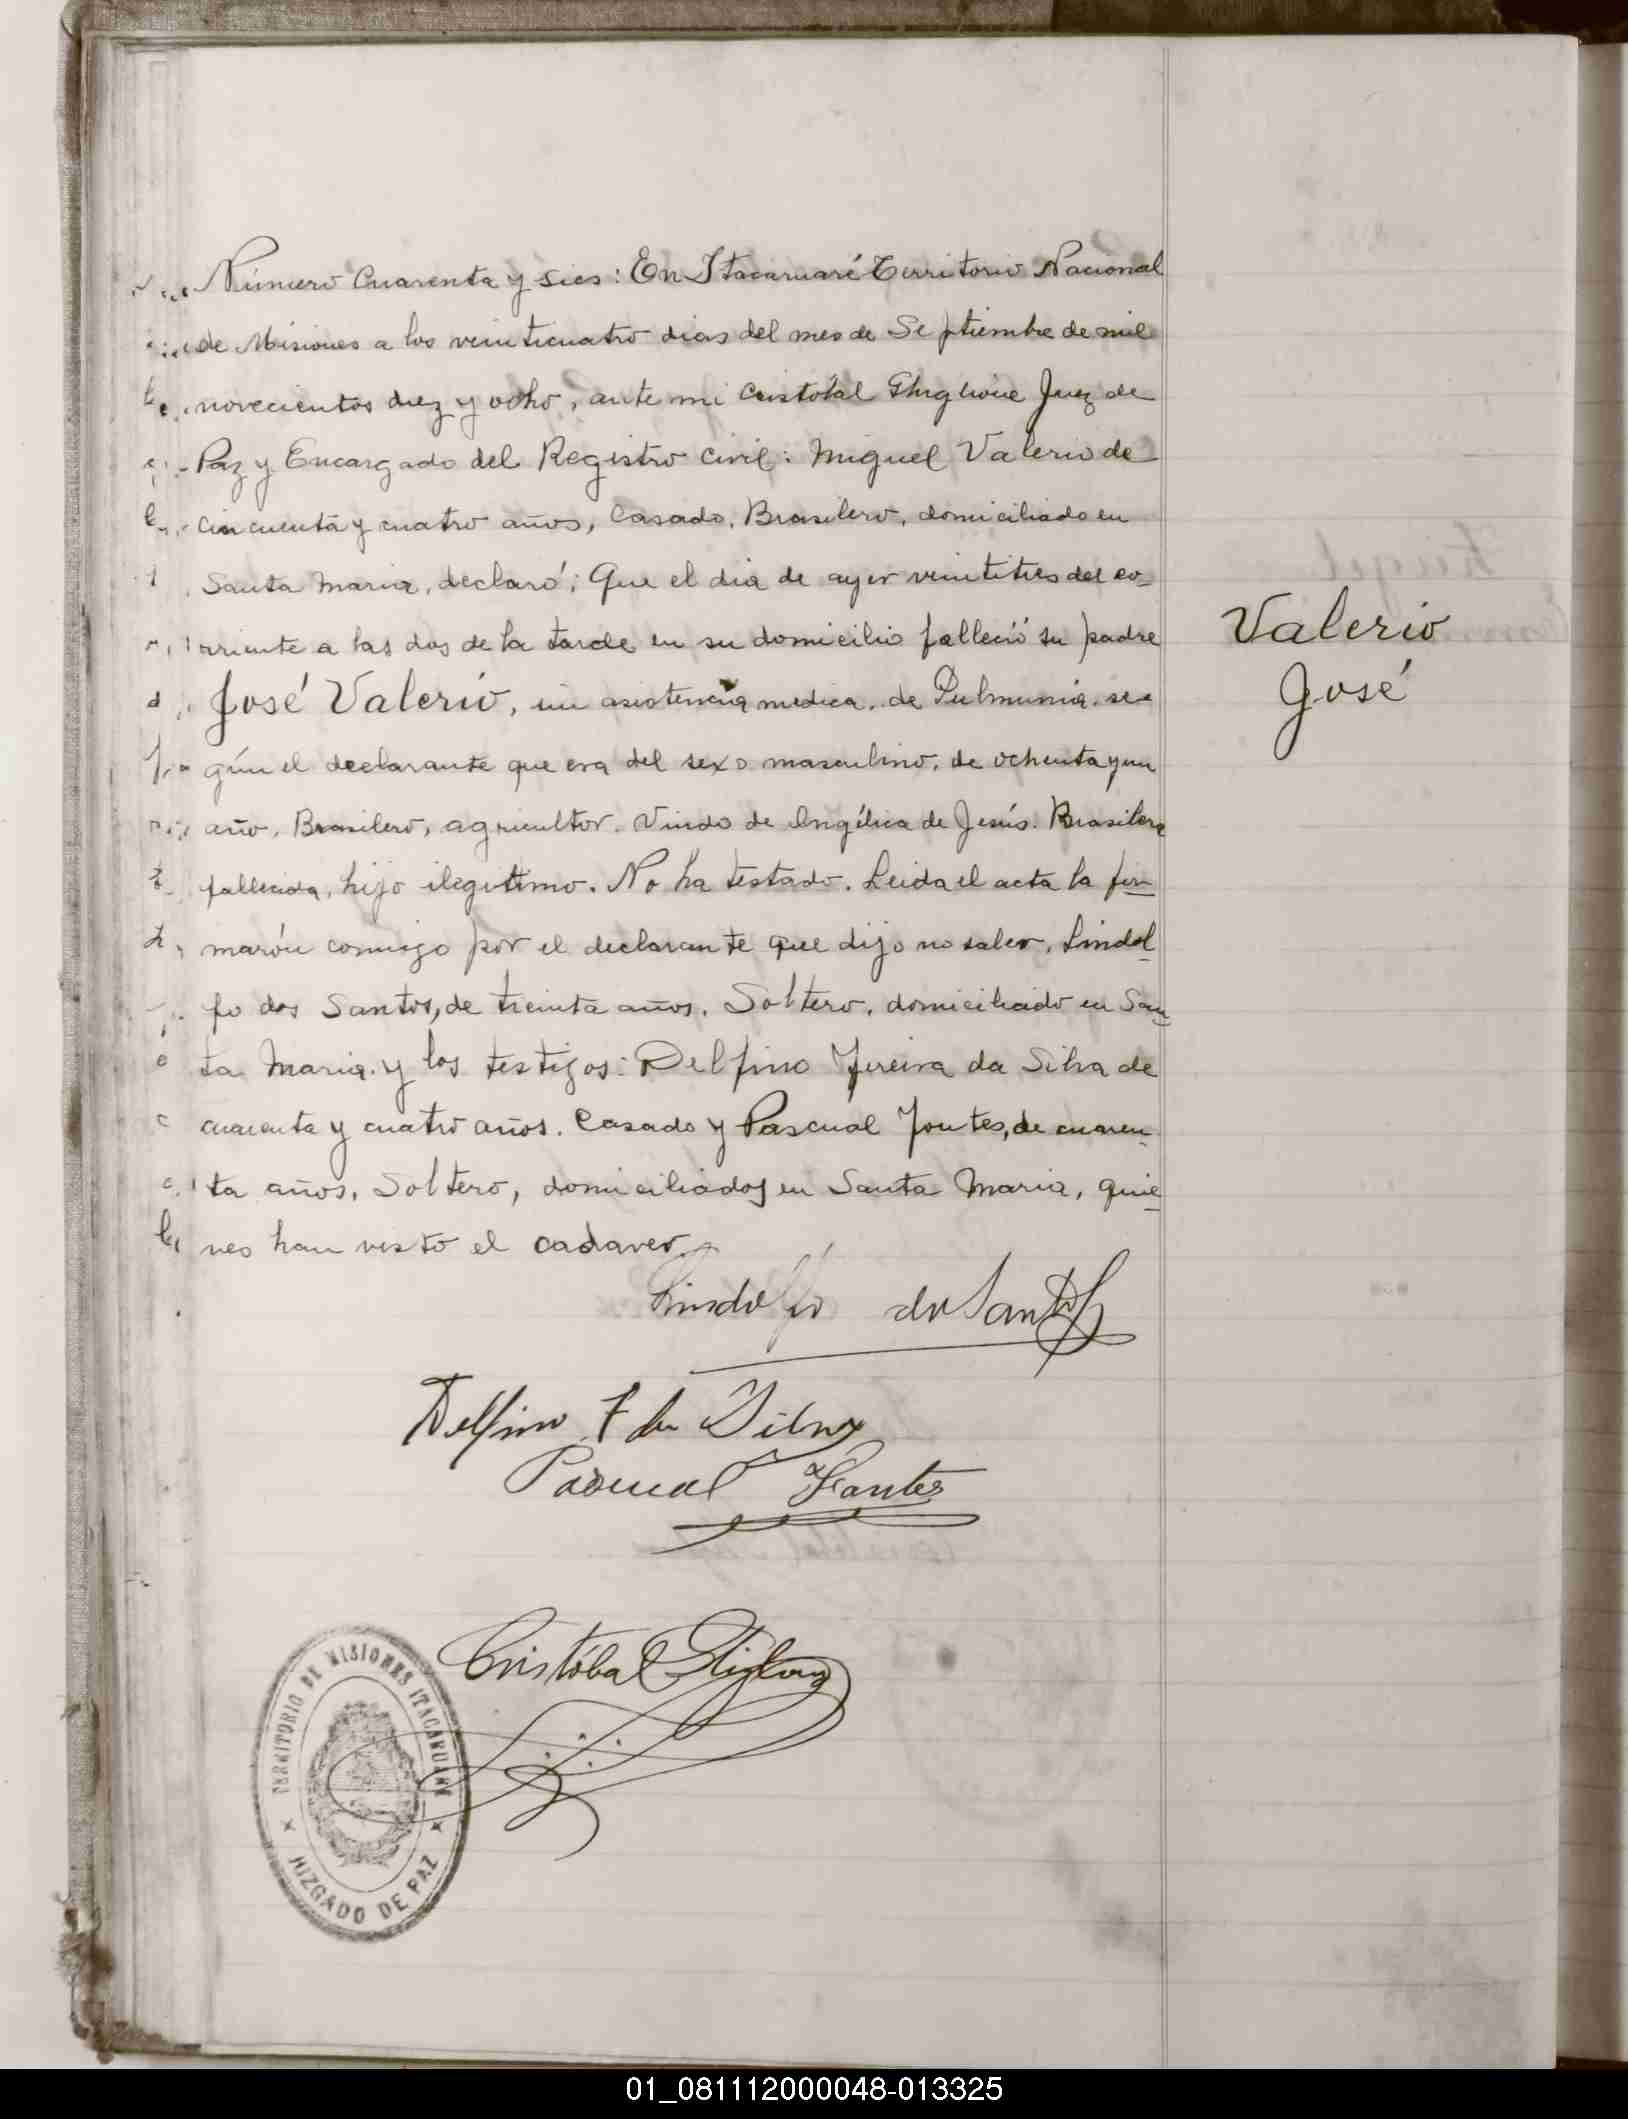 Número Cuarenta y sies: En Itacaruaré Territorio Nacional
de Misiones a los veinticuatro dias del mes de Septiembre de mil
novecientos diez y ocho, ante mi Cristóbal Ghiglione Juez de
Paz y Encargado del Registro Civil: Miguel Valerio de
cincuenta y cuatro años, Casado, Brasilero, domiciliado en
Santa Maria, declaró; Que el dia de ayer veintitres del co-
rriente a las dos de la tarde en su domicilio falleció su padre
José Valerio, sin asistencia medica, de Pulmunia, se-
gún el declarante que era del sexo masculino, de ochenta y un
año, Brasilero, agricultor. Viudo de Angélica de Jesús. Brasilera
fallecida, hijo ilegitimo. No ha testado. Leida el acta la fir-
marón conmigo por el declarante que dijo no saber, Lindol-
fo dos Santos, de treinta años, Soltero, domiciliado en San-
ta Maria y los testigos: Delfino Fereira da Silva de
cuarenta y cuatro años. Casado y Pascual Fontes, de cuaren-
ta años, Soltero, domiciliados en Santa Maria, quie-
nes han visto el cadaver.
Valerio
José
Lindolfo do Santos
Delfino F da Silva
Pascual Fantes
Cristóbal Ghiglione
TERRITORIO DE MISIONES ITACARUARÉ
JUZGADO DE PAZ
01_081112000048-013325